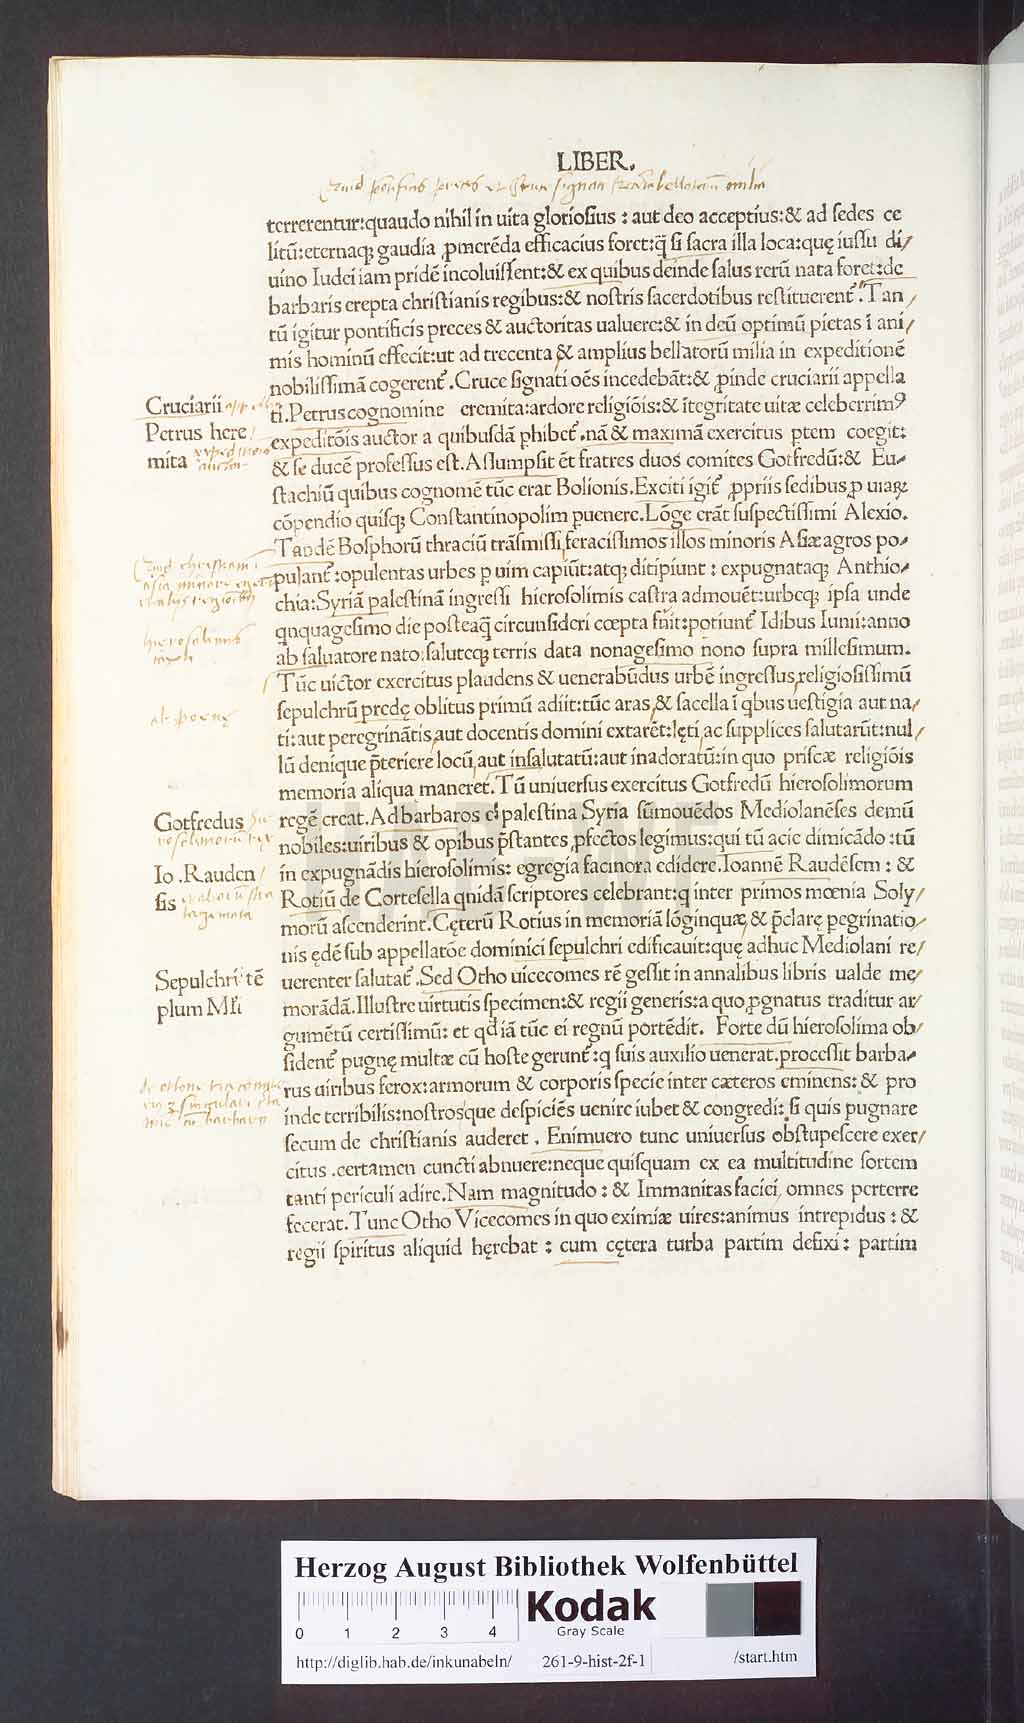 LIBER.
terrerentur:quaudo nihil in uita gloriosius : aut deo acceptius:& ad sedes ce
litū:eternaqȝ gaudia ꝓmerēda efficacius foret:q̃ si sacra illa loca:quę iussu di/
uino Iudei iam pridē incoluissent:& ex quibus deinde salus rerū nata foret:de
barbaris erepta christianis regibus:& nostris sacerdotibus restituerent᷑. Tan/
tū igitur pontificis preces & auctoritas ualuere:& in deū optimū pietas ī ani/
mis hominū effecit:ut ad trecenta & amplius bellatorū milia in expeditionē
nobilissimā cogerent᷑. Cruce signati oēs incedebāt:& ꝓinde cruciarii appella
ti. Petrus cognomine eremita:ardore religiōis:& ītegritate uitæ celeberrimꝰ
expeditōis auctor a quibusdā ꝓhibet᷑. nā & maximā exercitus ꝑtem coegit:
& se ducē professus est. Assumpsit ēt fratres duos comites Gotfredū:& Eu-
stachiū quibus cognomē tūc erat Bolionis. Exciti igit᷑ ꝓpriis sedibus ꝑ uiaꝝ
cōpendio quisqȝ Constantinopolim ꝑuenere. Lōge erāt suspectissimi Alexio.
Tandē Bosphorū thraciū trāsmissi feracissimos illos minoris Asiæ agros po-
pulant᷑:opulentas urbes ꝑ uim capiūt:atqȝ diripiunt : expugnataqȝ Anthio-
chia:Syriā palestinā ingressi hierosolimis castra admouēt:urbeqȝ ipsa unde
qnquagesimo die posteaq̃ circunsideri cœpta fuit:potiunt᷑ Idibus Iunii:anno
ab saluatore nato:saluteqȝ terris data nonagesimo nono supra millesimum.
Tūc uictor exercitus plaudens & uenerabūdus urbē ingressus religiosissimū
sepulchrū predę oblitus primū adiit:tūc aras & sacella ī qbus uestigia aut na/
ti:aut peregrinātis aut docentis domini extarēt:lęti ac supplices salutarūt:nul/
lū denique p̄teriere locū aut insalutatū:aut inadoratū:in quo priscæ religiōis
memoria aliqua maneret. Tū uniuersus exercitus Gotfredū hierosolimorum
regē creat. Ad barbaros ex palestina Syria sūmouēdos Mediolanēses demū
nobiles:uiribus & opibus p̄stantes ꝓfectos legimus:qui tū acie dimicādo :tū
in expugnādis hierosolimis: egregia facinora edidere. Ioannē Raudēsem : &
Rotiū de Cortesella qnidā scriptores celebrant:q inter primos mœnia Soly/
morū ascenderint. Cęterū Rotius in memoriā lōginquæ & p̄clarę pegrinatio/
nis ędē sub appellatōe dominici sepulchri edificauit:quę adhuc Mediolani re/
uerenter salutat᷑. Sed Otho uicecomes rē gessit in annalibus libris ualde me/
morādā. Illustre uirtutis specimen:& regii generis:a quo ꝓgnatus traditur ar/
gumētū certissimū: et qđ iā tūc ei regnū portēdit. Forte dū hierosolima ob/
sident᷑ pugnę multæ cū hoste gerunt᷑:q suis auxilio uenerat. processit barba-
rus uiribus ferox:armorum & corporis specie inter cæteros eminens: & pro
inde terribilis:nostrosque despiciēs uenire iubet & congredi: si quis pugnare
secum de christianis auderet . Enimuero tunc uniuersus obstupescere exer/
citus .certamen cuncti abnuere:neque quisquam ex ea multitudine sortem
tanti periculi adire. Nam magnitudo : & Immanitas faciei omnes perterre
fecerat. Tunc Otho Vicecomes in quo eximiæ uires:animus intrepidus : &
regii spiritus aliquid hęrebat : cum cętera turba partim defixi : partim
Cruciarii
Petrus here
mita
Gotfredus
Io .Rauden
sis
Sepulchri tē
plum Mli
Herzog August Bibliothek Wolfenbüttel
0 1 2 3 4
Kodak
Gray Scale
http://diglib.hab.de/inkunabeln/ 261-9-hist-2f-1 /start.htm